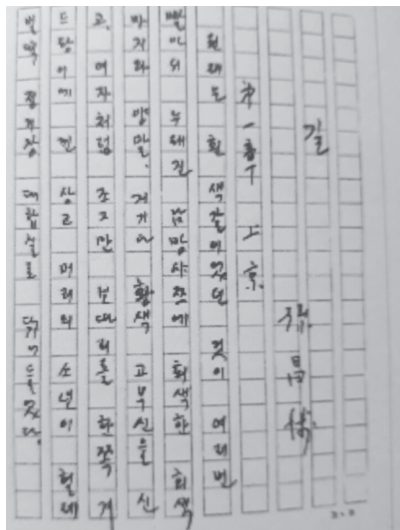 길
第一章 上京
원래도 흰 색깔이었던 것이 여러번
빨아서 누래진 남방샤쓰에 회색한 회색
바지와 양말, 거기다 황색 고무신을 신
고, 여자처럼 조그만 보따리를 한쪽 겨
드랑이에 낀 상고 머리의 소년이 헐레
벌떡 정거장 대합실로 뛰어들었다.